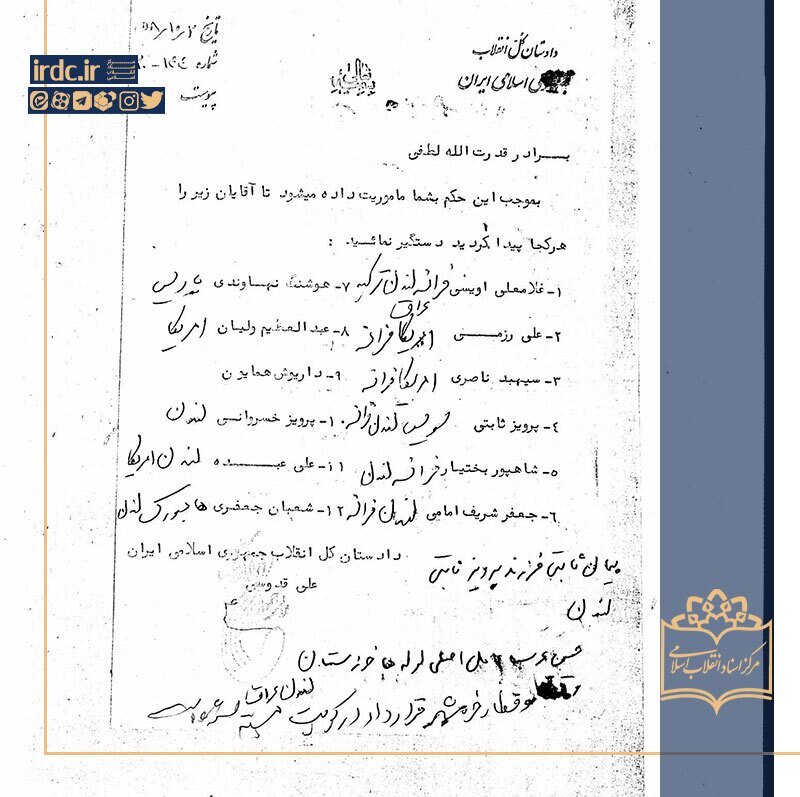 irdc.ir
دادستان کل انقلاب
اسلامی ایران
تاریخ
شماره
پیوست
بسمه تعالی
برادر قدرت الله لطفی
بموجب این حکم بشما ماموریت داده میشود تا آقایان زیر را
هرکجا پیدا کردید دستگیر نمائید :
۱- غلامعلی اویسی فرانسه لندن ترکیه ۷- هوشنگ نهاوندی پاریس
عراق
۲- علی رزمی امریکا فرانسه ۸- عبدالعظیم ولیان امریکا
۳- سپهبد ناصری امریکا فرانسه ۹- داریوش همایون
۴- پرویز ثابتی سویس لندن فرانسه ۱۰- پرویز خسروانی لندن
۵- شاهپور بختیار فرانسه لندن ۱۱- علی عبده لندن امریکا
۶- جعفر شریف امامی لندن فرانسه ۱۲- شعبان جعفری هامبورک لندن
دادستان کل انقلاب جمهوری اسلامی ایران
علی قدوسی
پیمان ثابتی فرزند پرویز ثابتی
لندن
اصلی لوله ها خوزستان
لندن عراق
قطار خرمشهر قرارداد از کویت
مرکز اسناد انقلاب اسلامی